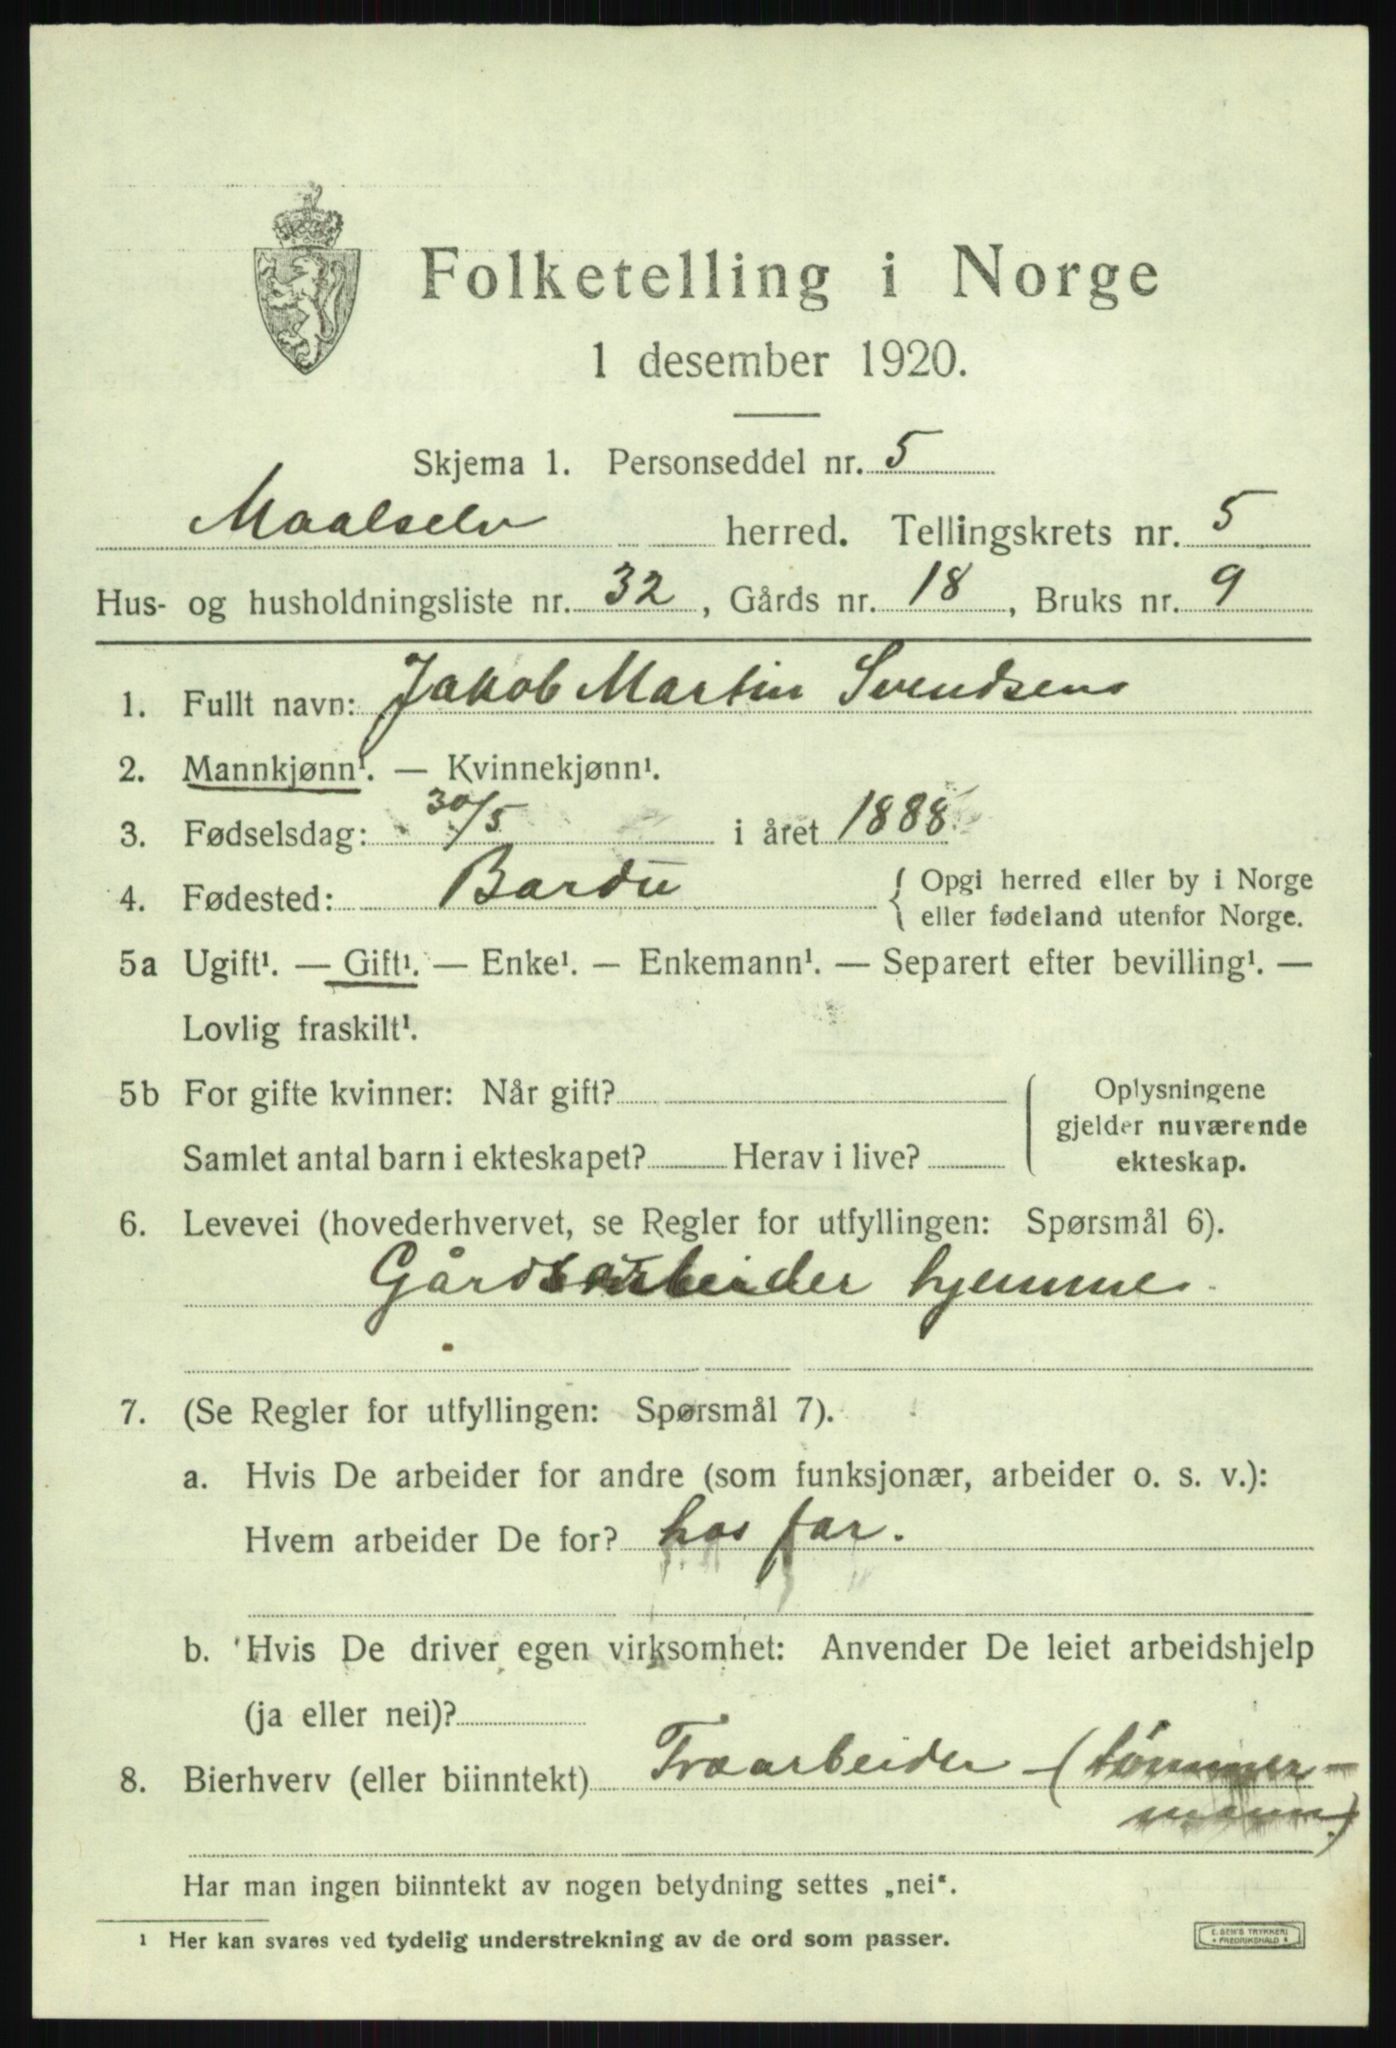 Folketelling i Norge
1 desember 1920.
Skjema 1. Personseddel nr. 5
Maalselv herred. Tellingskrets nr. 5
Hus- og husholdningsliste nr. 32, Gårds nr. 18, Bruks nr. 9
1. Fullt navn: Jakob Martin Svendsen
2. Mannkjønn¹. — Kvinnekjønn¹.
3. Fødselsdag: 30/5 i året 1888
4. Fødested: Bardu { Opgi herred eller by i Norge
eller fødeland utenfor Norge.
5a Ugift¹. — Gift¹. — Enke¹. — Enkemann¹. — Separert efter bevilling¹. —
Lovlig fraskilt¹.
5b For gifte kvinner: Når gift? Oplysningene
gjelder nuværende
Samlet antal barn i ekteskapet? Herav i live? ekteskap.
6. Levevei (hovederhvervet, se Regler for utfyllingen: Spørsmål 6).
Gårdsarbeider hjemme
7. (Se Regler for utfyllingen: Spørsmål 7).
a. Hvis De arbeider for andre (som funksjonær, arbeider o. s. v.):
Hvem arbeider De for? hos far.
b. Hvis De driver egen virksomhet: Anvender De leiet arbeidshjelp
(ja eller nei)?
8. Bierhverv (eller biinntekt) Træarbeider (tømmer-
mann)
Har man ingen biinntekt av nogen betydning settes „nei“.
¹ Her kan svares ved tydelig understrekning av de ord som passer.
E. SEM'S TRYKKERI
FREDRIKSHALD